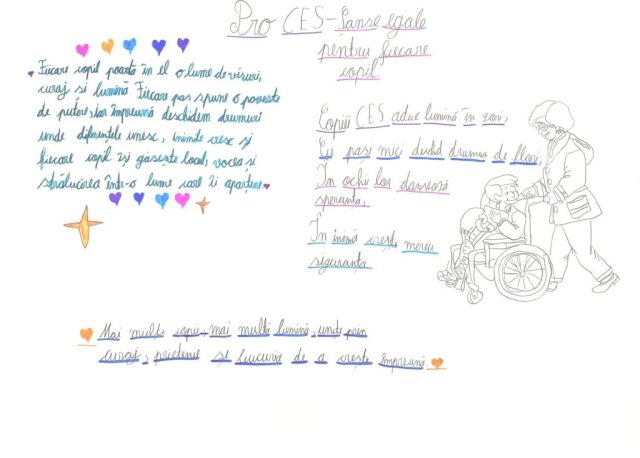 Pro CES-Șanse egale
pentru fiecare
copil
Fiecare copil poartă în el o lume de visuri,
curaj si lumină Fiecare pas spune o poveste
de putere, iar împreună deschidem drumuri
unde diferentele unesc, inimile cresc și
fiecare copil își găsește locul, vocea și
strălucirea într-o lume care îi aparține
Copiii CES aduc lumină în zori,
Cu pași mici deschid drumuri de flori,
În ochii lor dansează
speranța,
În inimă crește mereu
siguranța
Mai multi copii, mai multă lumină, uniți prin
curaj, prietenie și bucuria de a crește împreună